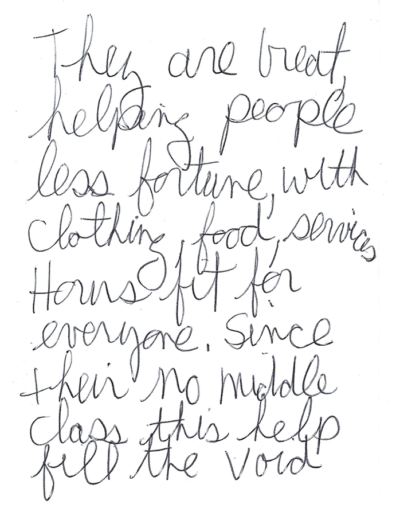 They are treat,
helping people
less fortune, with
clothing, food, services
Hours fit for
everyone. Since
their no middle
class this help
fill the void